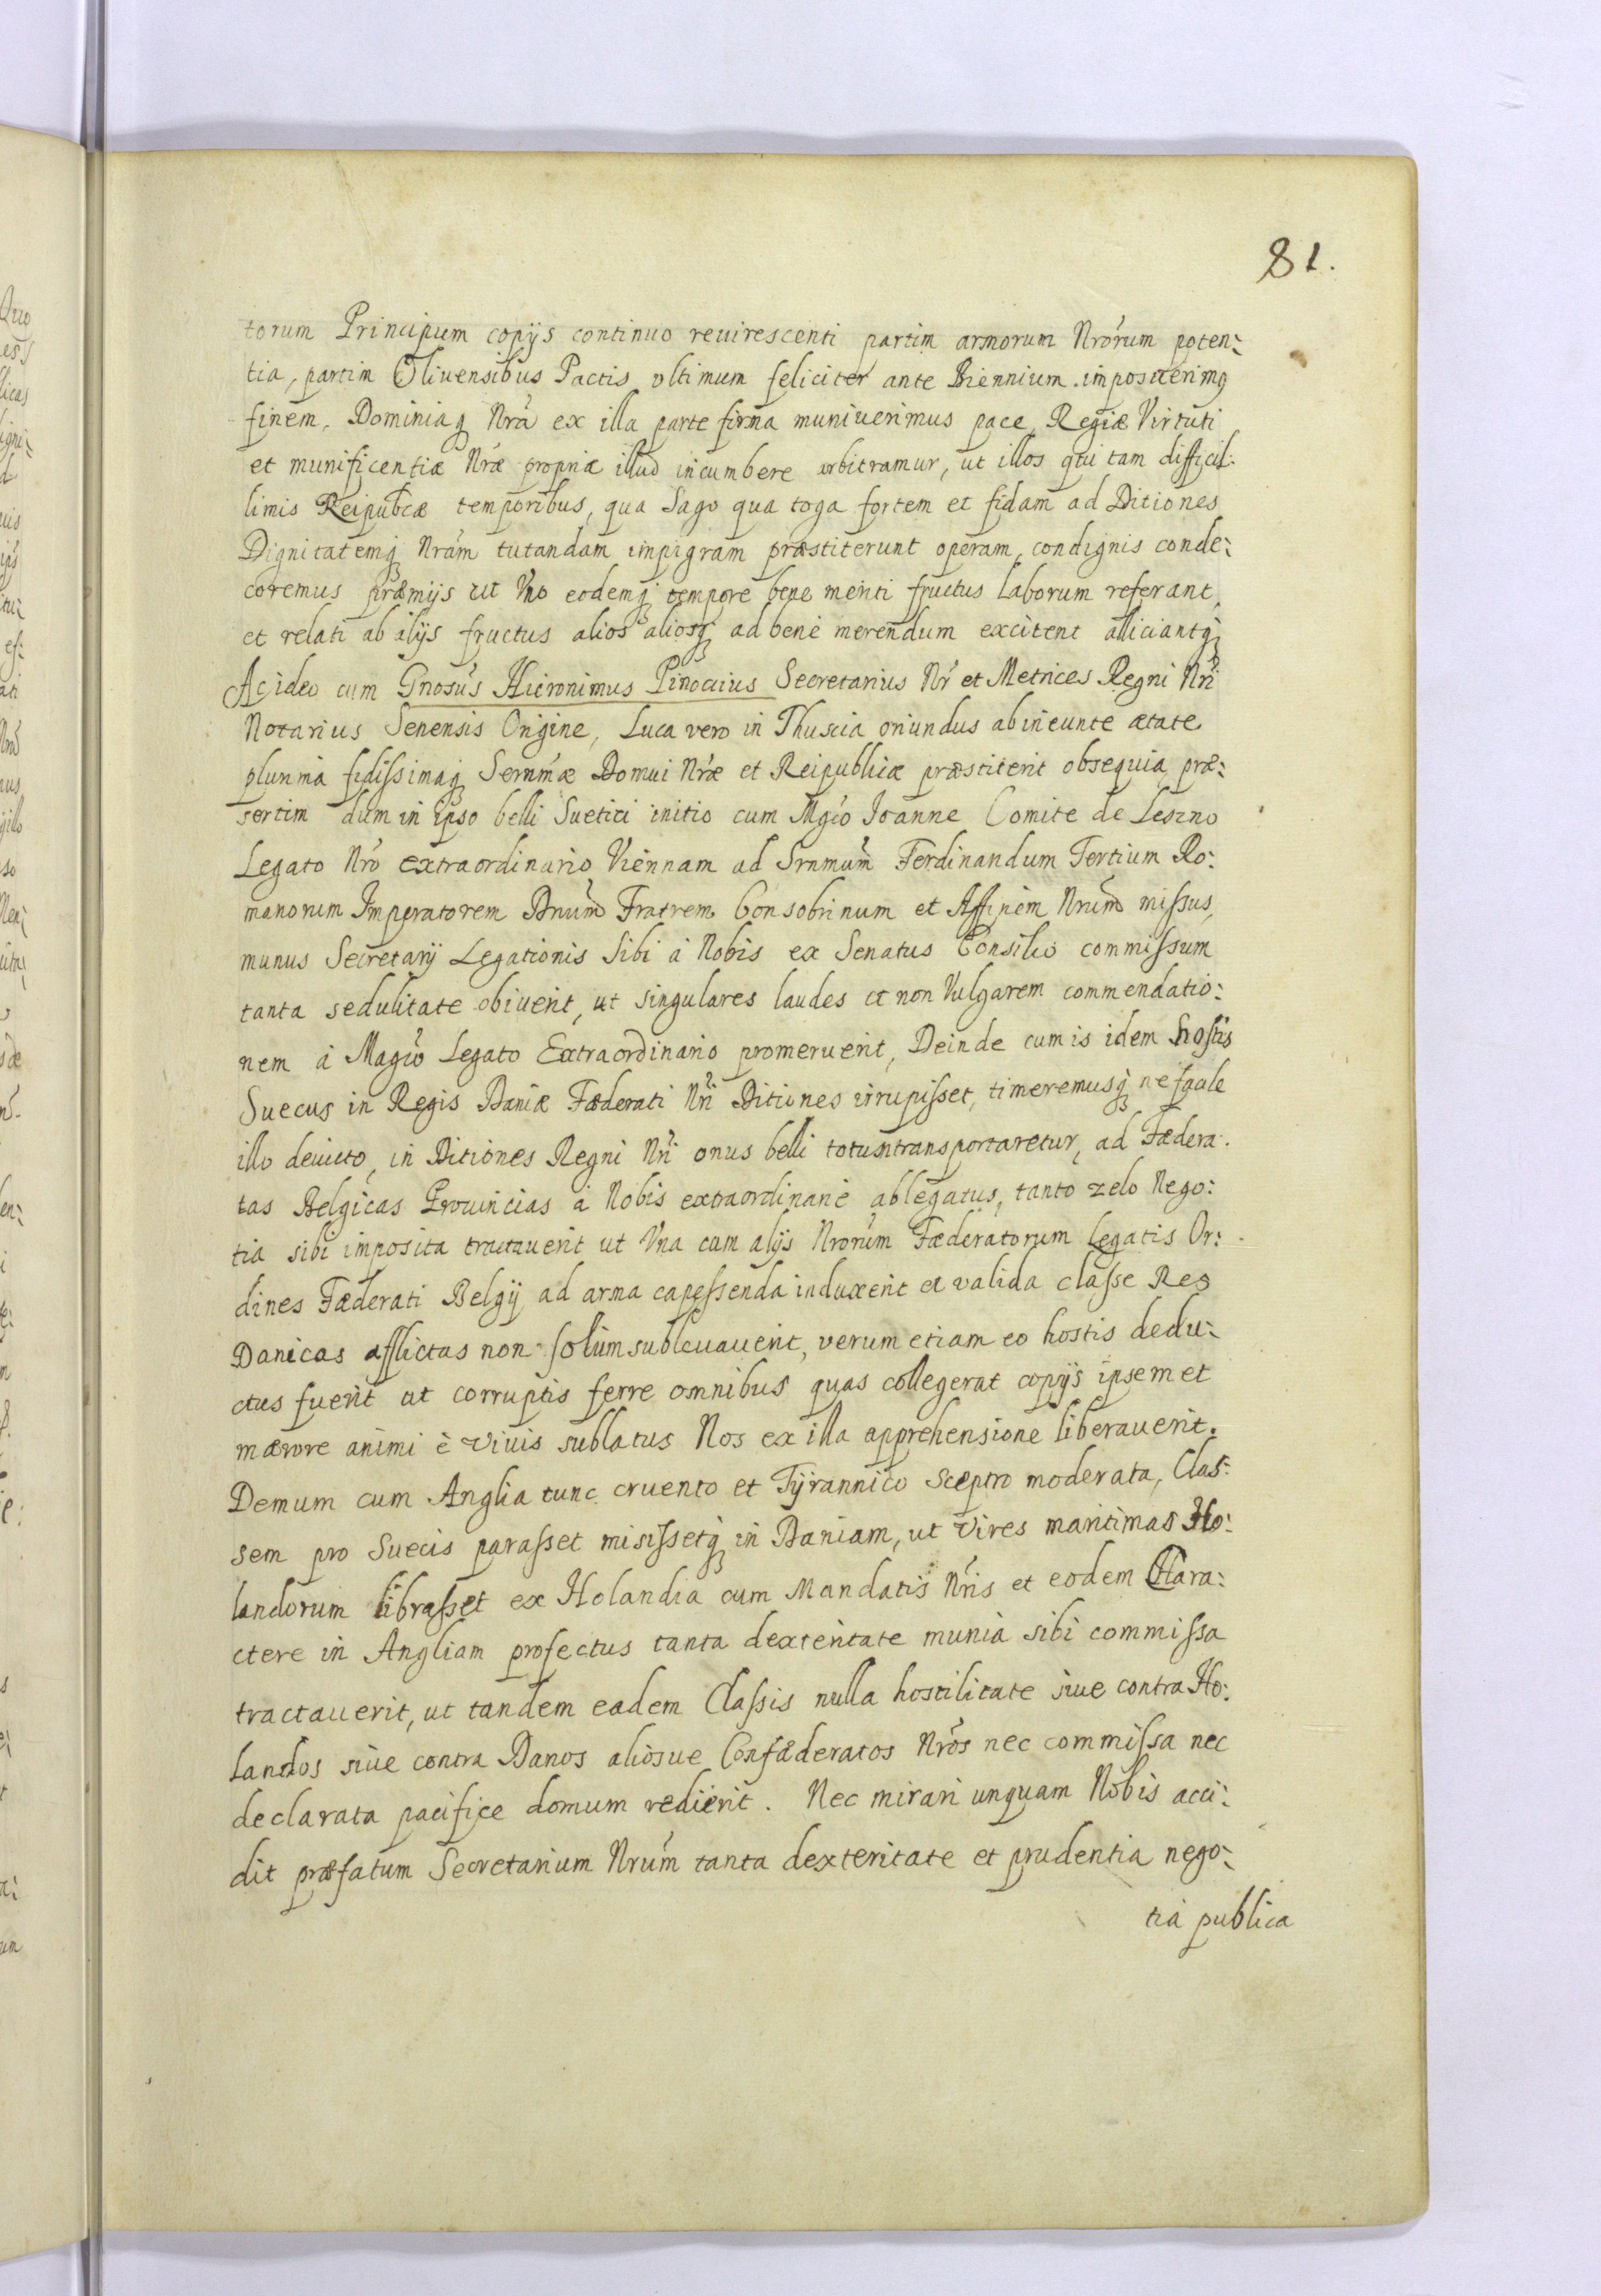 81.
torum Principum copijs continuo reuirescenti partim armorum Nrorum poten:
tia, partim Oliuensibus Pactis vltimum feliciter ante Biennium imposuerimq
finem, Dominiaq Nra ex illa parte firma muniuerimus pace, Regiæ Virtuti
et munificentiæ Nræ propriæ illud incumbere arbitramur, ut illos qui tam difficil:
limis Reipubcæ temporibus, qua Sago qua toga fortem et fidam ad Ditiones
Dignitatemq Nram tutandam impigram præstiterunt operam, condignis conde:
coremus præmijs ut Vno eodemq tempore bene meriti fructus laborum referant,
et relati ab alijs fructus alios aliosq ad bene merendum excitent alliciantq
Ac ideo cum Gnosus Hieronimus Pinocius Secretarius Nr et Metrices Regni Nri
Notarius Senensis Origine, Luca vero in Thuscia oriundus ab ineunte ætate
plurima fidissimaq Sernmæ Domui Nræ et Reipublicæ præstiterit obsequia, præ:
sertim dum in ipso belli Suetici initio cum Mgco Ioanne Comite de Leszno
Legato Nro extraordinario Viennam ad Srnmum Ferdinandum Tertium Ro:
manorum Imperatorem Dnum Fratrem Consobrinum et Affinem Nrum missus,
munus Secretarij Legationis Sibi à Nobis ex Senatus Consilio commissum
tanta sedulitate obiuerit, ut singulares laudes et non Vulgarem commendatio:
nem à Magco Legato Extraordinario promeruerit, Deinde cum is idem hostis
Suecus in Regis Daniæ Fæderati Nri Ditiones irrupisset, timeremusq ne facile
illo deuicto, in Ditiones Regni Nri onus belli totum transportaretur, ad Fædera:
tas Belgicas Prouincias à Nobis extraordinariè ablegatus, tanto zelo Nego:
tia sibi imposita tractauerit ut Vna cum alijs Nrorum Fæderatorum Legatis Or:
dines Fæderati Belgij ad arma capessenda induxerit et valida classe Res
Danicas afflictas non solum subleuauerit, verum etiam eo hostis dedu:
ctus fuerit ut corruptis ferre omnibus quas collegerat copijs ipsemet
mærore animi è viuis sublatus Nos ex illa apprehensione liberauerit.
Demum cum Anglia tunc cruento et Tyrannico Sceptro moderata, Clas:
sem pro Suecis parasset misissetq in Daniam, ut vires maritimas Ho:
landorum librasset ex Holandia cum Mandatis Nris et eodem Chara:
ctere in Angliam profectus tanta dexteritate munia sibi commissa
tractauerit, ut tandem eadem Classis nulla hostilitate siue contra Ho:
landos siue contra Danos aliosue Confæderatos Nros nec commissa nec
declarata pacifice domum redierit. Nec mirari unquam Nobis acci:
dit præfatum Secretarium Nrum tanta dexteritate et prudentia nego:
tia publica